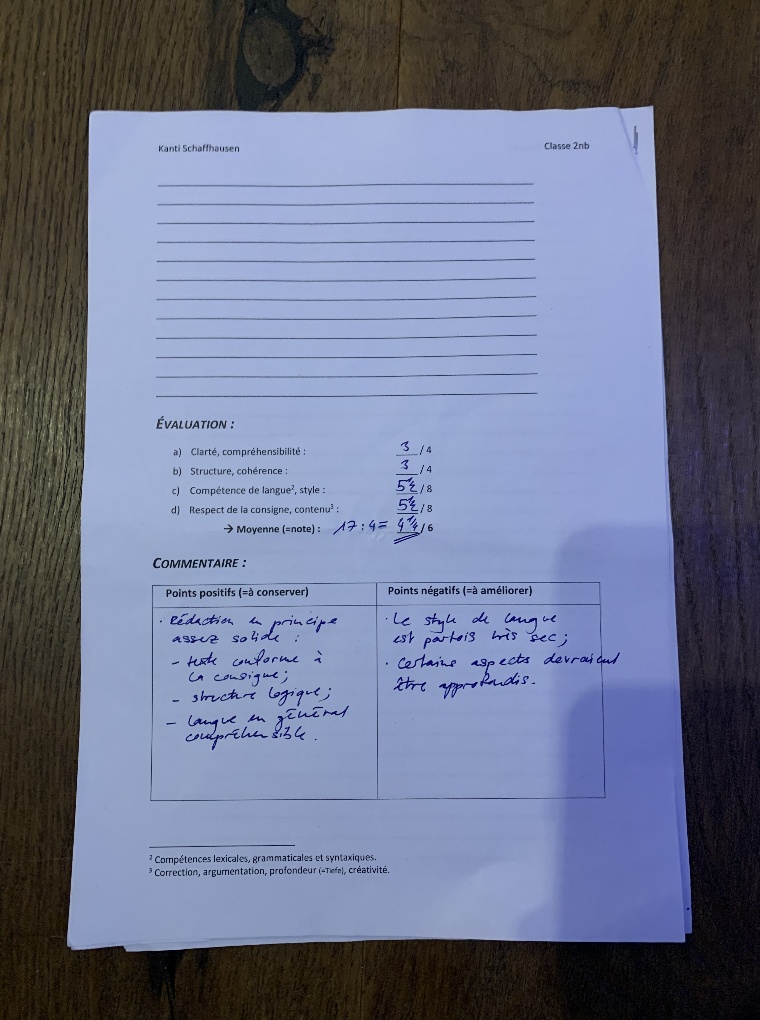 Kanti Schaffhausen
Classe 2nb
ÉVALUATION :
a) Clarté, compréhensibilité : 3 / 4
b) Structure, cohérence : 3 / 4
c) Compétence de langue², style : 5½ / 8
d) Respect de la consigne, contenu³ : 5½ / 8
→ Moyenne (=note) : 17 : 4 = 4¼ / 6
COMMENTAIRE :
Points positifs (=à conserver)
· Rédaction en principe
assez solide :
- texte conforme à
la consigne;
- structure logique;
- langue en général
compréhensible.
Points négatifs (=à améliorer)
· Le style de langue
est parfois très sec;
· Certains aspects devraient
être approfondis.
² Compétences lexicales, grammaticales et syntaxiques.
³ Correction, argumentation, profondeur (=Tiefe), créativité.